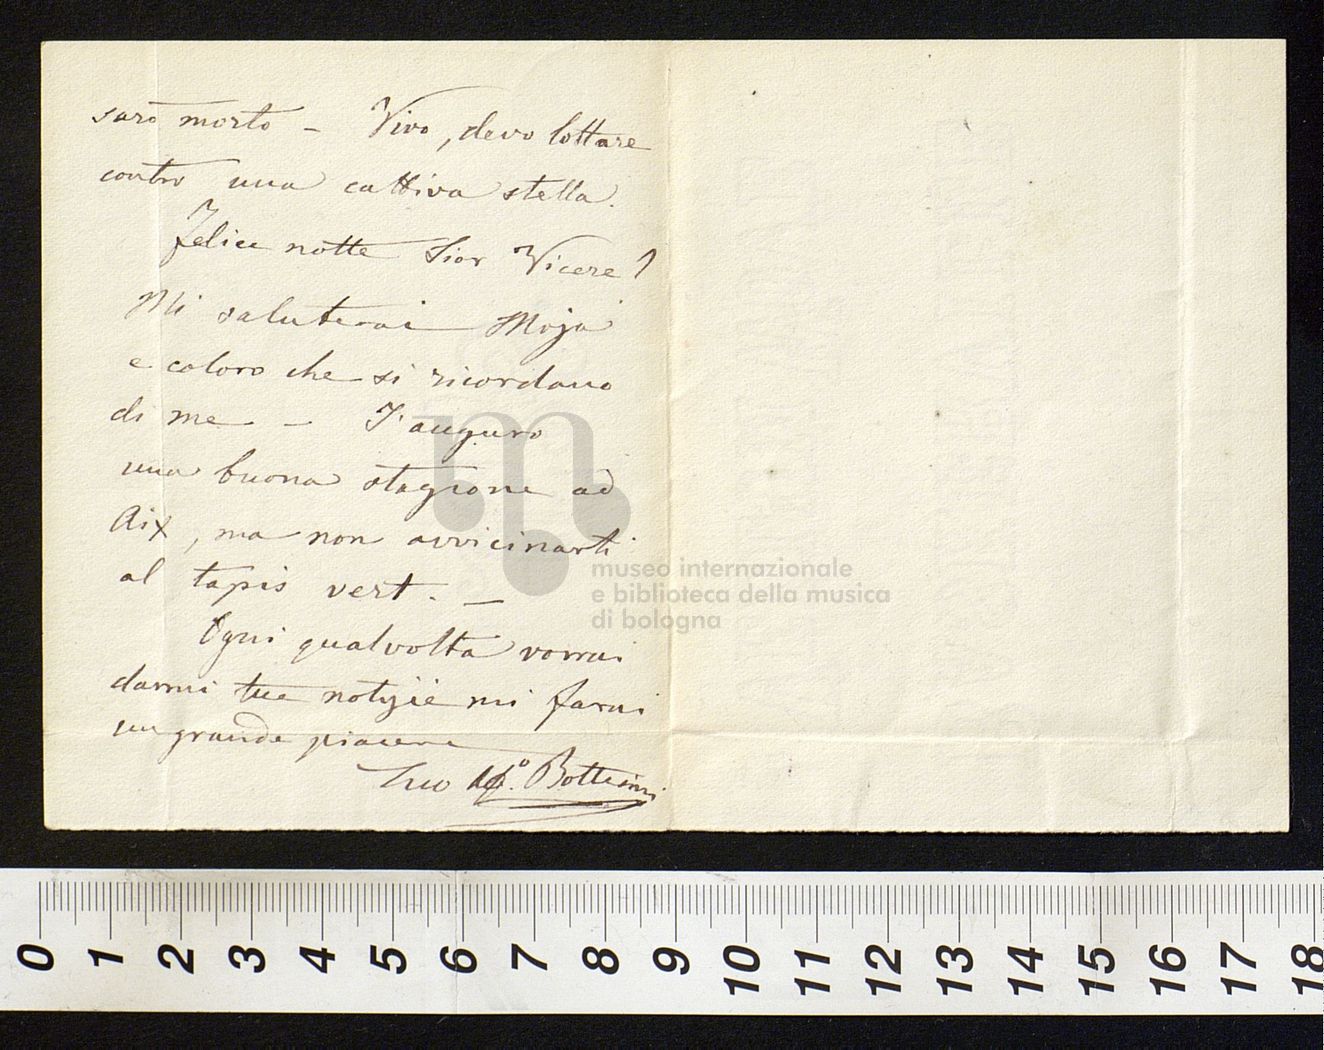 sarò morto – Vivo, devo lottare
contro una cattiva stella.
Felice notte Sior Vicere!
Mi saluterai Moja
e coloro che si ricordano
di me – T'auguro
una buona stagione ad
Aix, ma non avvicinarti
al tapis vert. –
Ogni qualvolta vorrai
darmi tue notizie mi farai
un grande piacere
Tuo Bottesini
museo internazionale
e biblioteca della musica
di bologna
0 1 2 3 4 5 6 7 8 9 10 11 12 13 14 15 16 17 18